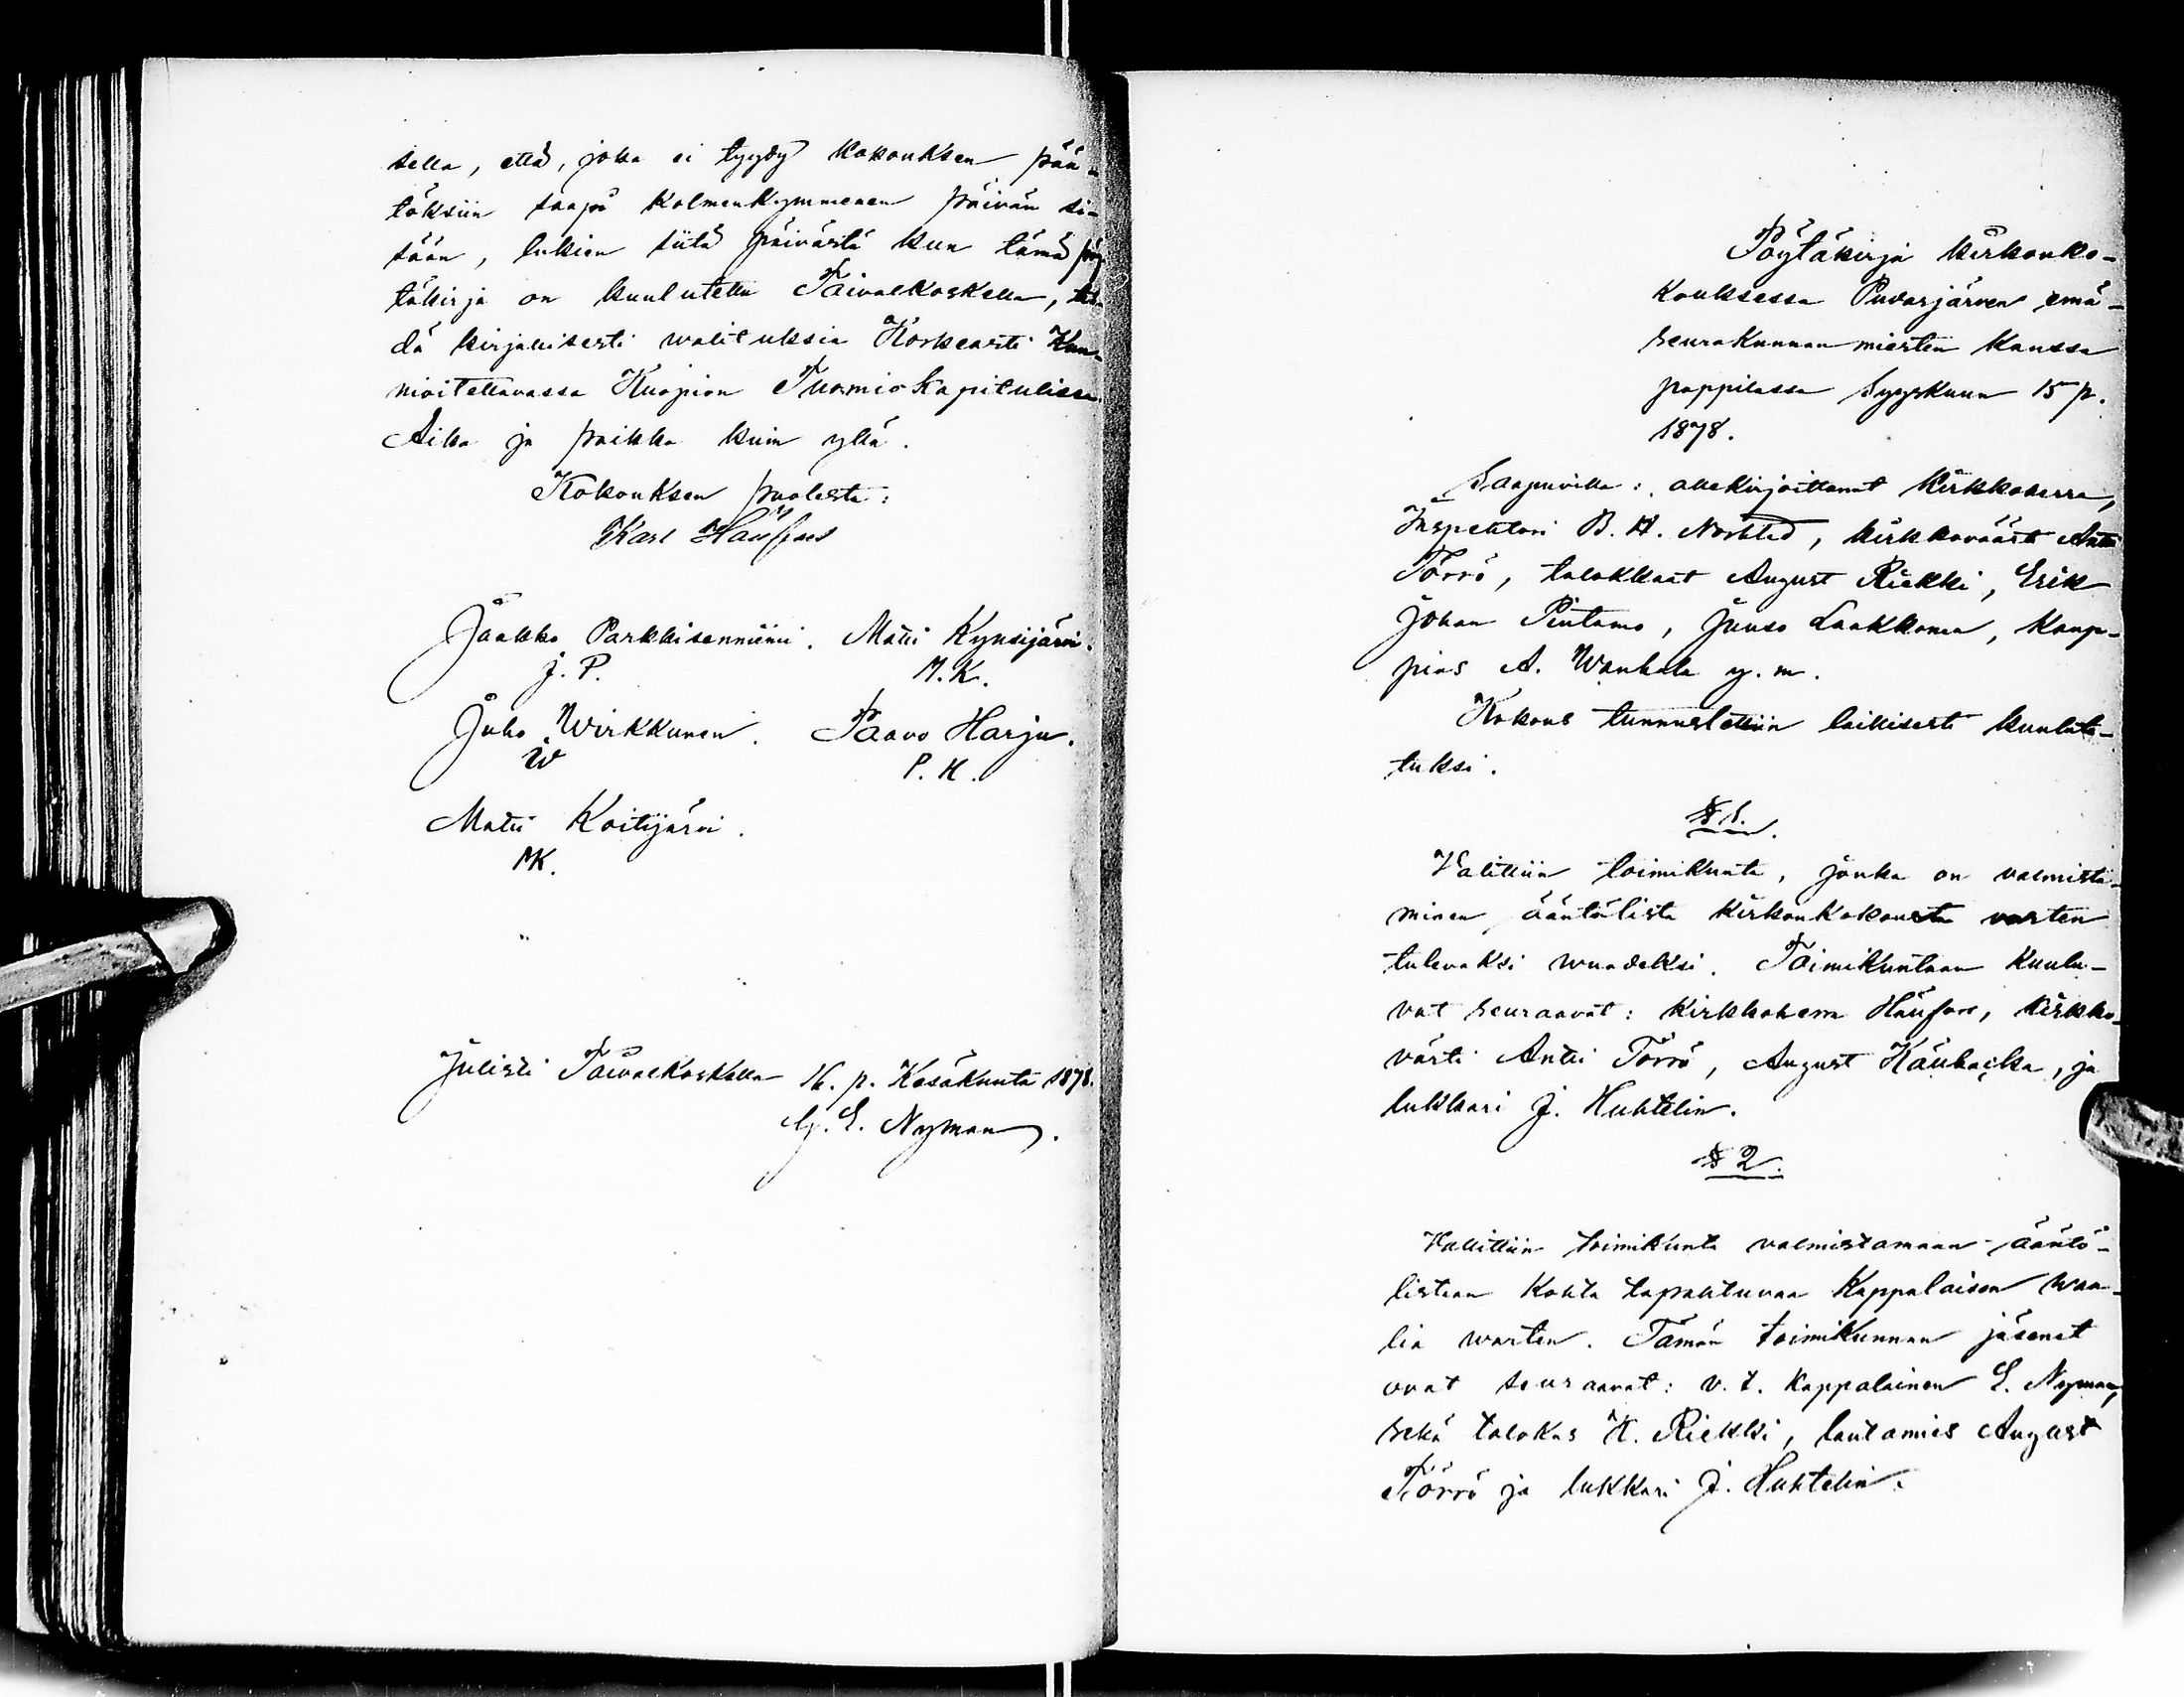 sella, että, joka ei tyydy kokouksen pää-
töksiin saapi kolmenkymmenen päivän si-
sään, lukien siitä päivästä kun tämä pöy-
täkirja on kuulutettu Taivalkoskella, teh-
dä kirjallisesti walituksia Korkeasti Kun-
nioitettavassa Kuopion Tuomiokapitulissa
Aika ja paikka kuin yllä.
Kokouksen puolesta:
Karl
Jaakko Parkkisenniemi. Matti Kynsijärvi.
J. P. M. K.
Juho Wirkkunen. Paavo Harju.
W P. H.
Matti Koitijärvi.
MK.
Julisti Taivalkoskella 16. p. Kesäkuuta 1878.
G. E. Nyman.
Pöytäkirja kirkonko-
kouksessa Pudasjärven emä-
seurakunnan miesten kanssa
pappilassa Syyskuun 15 p.
1878.
Saapuvilla: allekirjoittanut kirkkoherra,
Inspehtori B. A. kirkkoväärti Antti
Törrö, talokkaat August Riekki, Erik
Johan Pintamo, Juuso Laakkonen, kaup-
pias A. Wanhala y. m.
Kokous tunnustettiin laillisesti kuulute-
tuksi.
§ 1.
Valittiin toimikunta, jonka on valmista-
minen ääntölista kirkonkokousta varten
tulevaksi wuodeksi. Toimikuntaan kuulu-
vat seuraavat: kirkkoherra kirkko-
värti Antti Törrö, August ja
lukkari J. Huhtelin.
§ 2.
Vallittiin toimikunta valmistamaan ääntö-
listaan kohta tapahtuvaa kappalaisen waa-
lia warten. Tämän toimikunnan jäsenet
ovat seuraavat: v. t. kappalainen E. Nyman,
sekä talokas H. Riekki, lautamies August
Törrö ja lukkari J. Huhtelin.